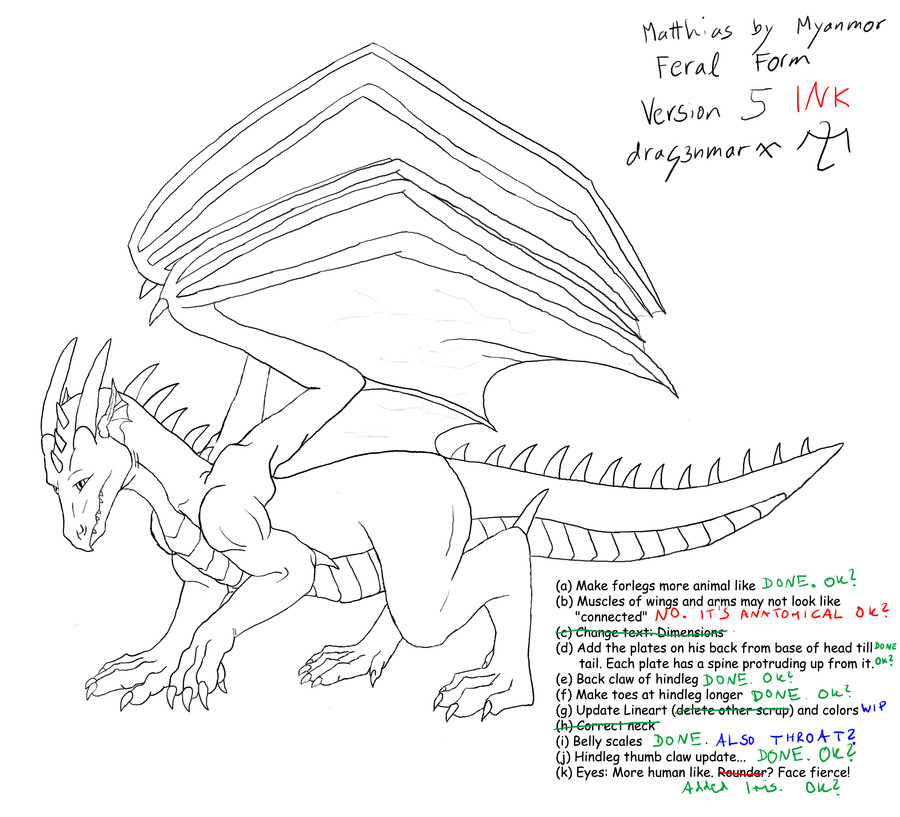 Matthias by Myanmor
Feral Form
Version 5 INK
drag3nmarx
(a) Make forlegs more animal like DONE. OK?
(b) Muscles of wings and arms may not look like
"connected" NO. IT'S ANATOMICAL OK?
(c) Change text: Dimensions
(d) Add the plates on his back from base of head till DONE
tail. Each plate has a spine protruding up from it. OK?
(e) Back claw of hindleg DONE. OK?
(f) Make toes at hindleg longer DONE. OK?
(g) Update Lineart (delete other scrap) and colors WIP
(h) Correct neck
(i) Belly scales DONE. ALSO THROAT?
(j) Hindleg thumb claw update... DONE. OK?
(k) Eyes: More human like. Rounder? Face fierce!
Added Iris. OK?